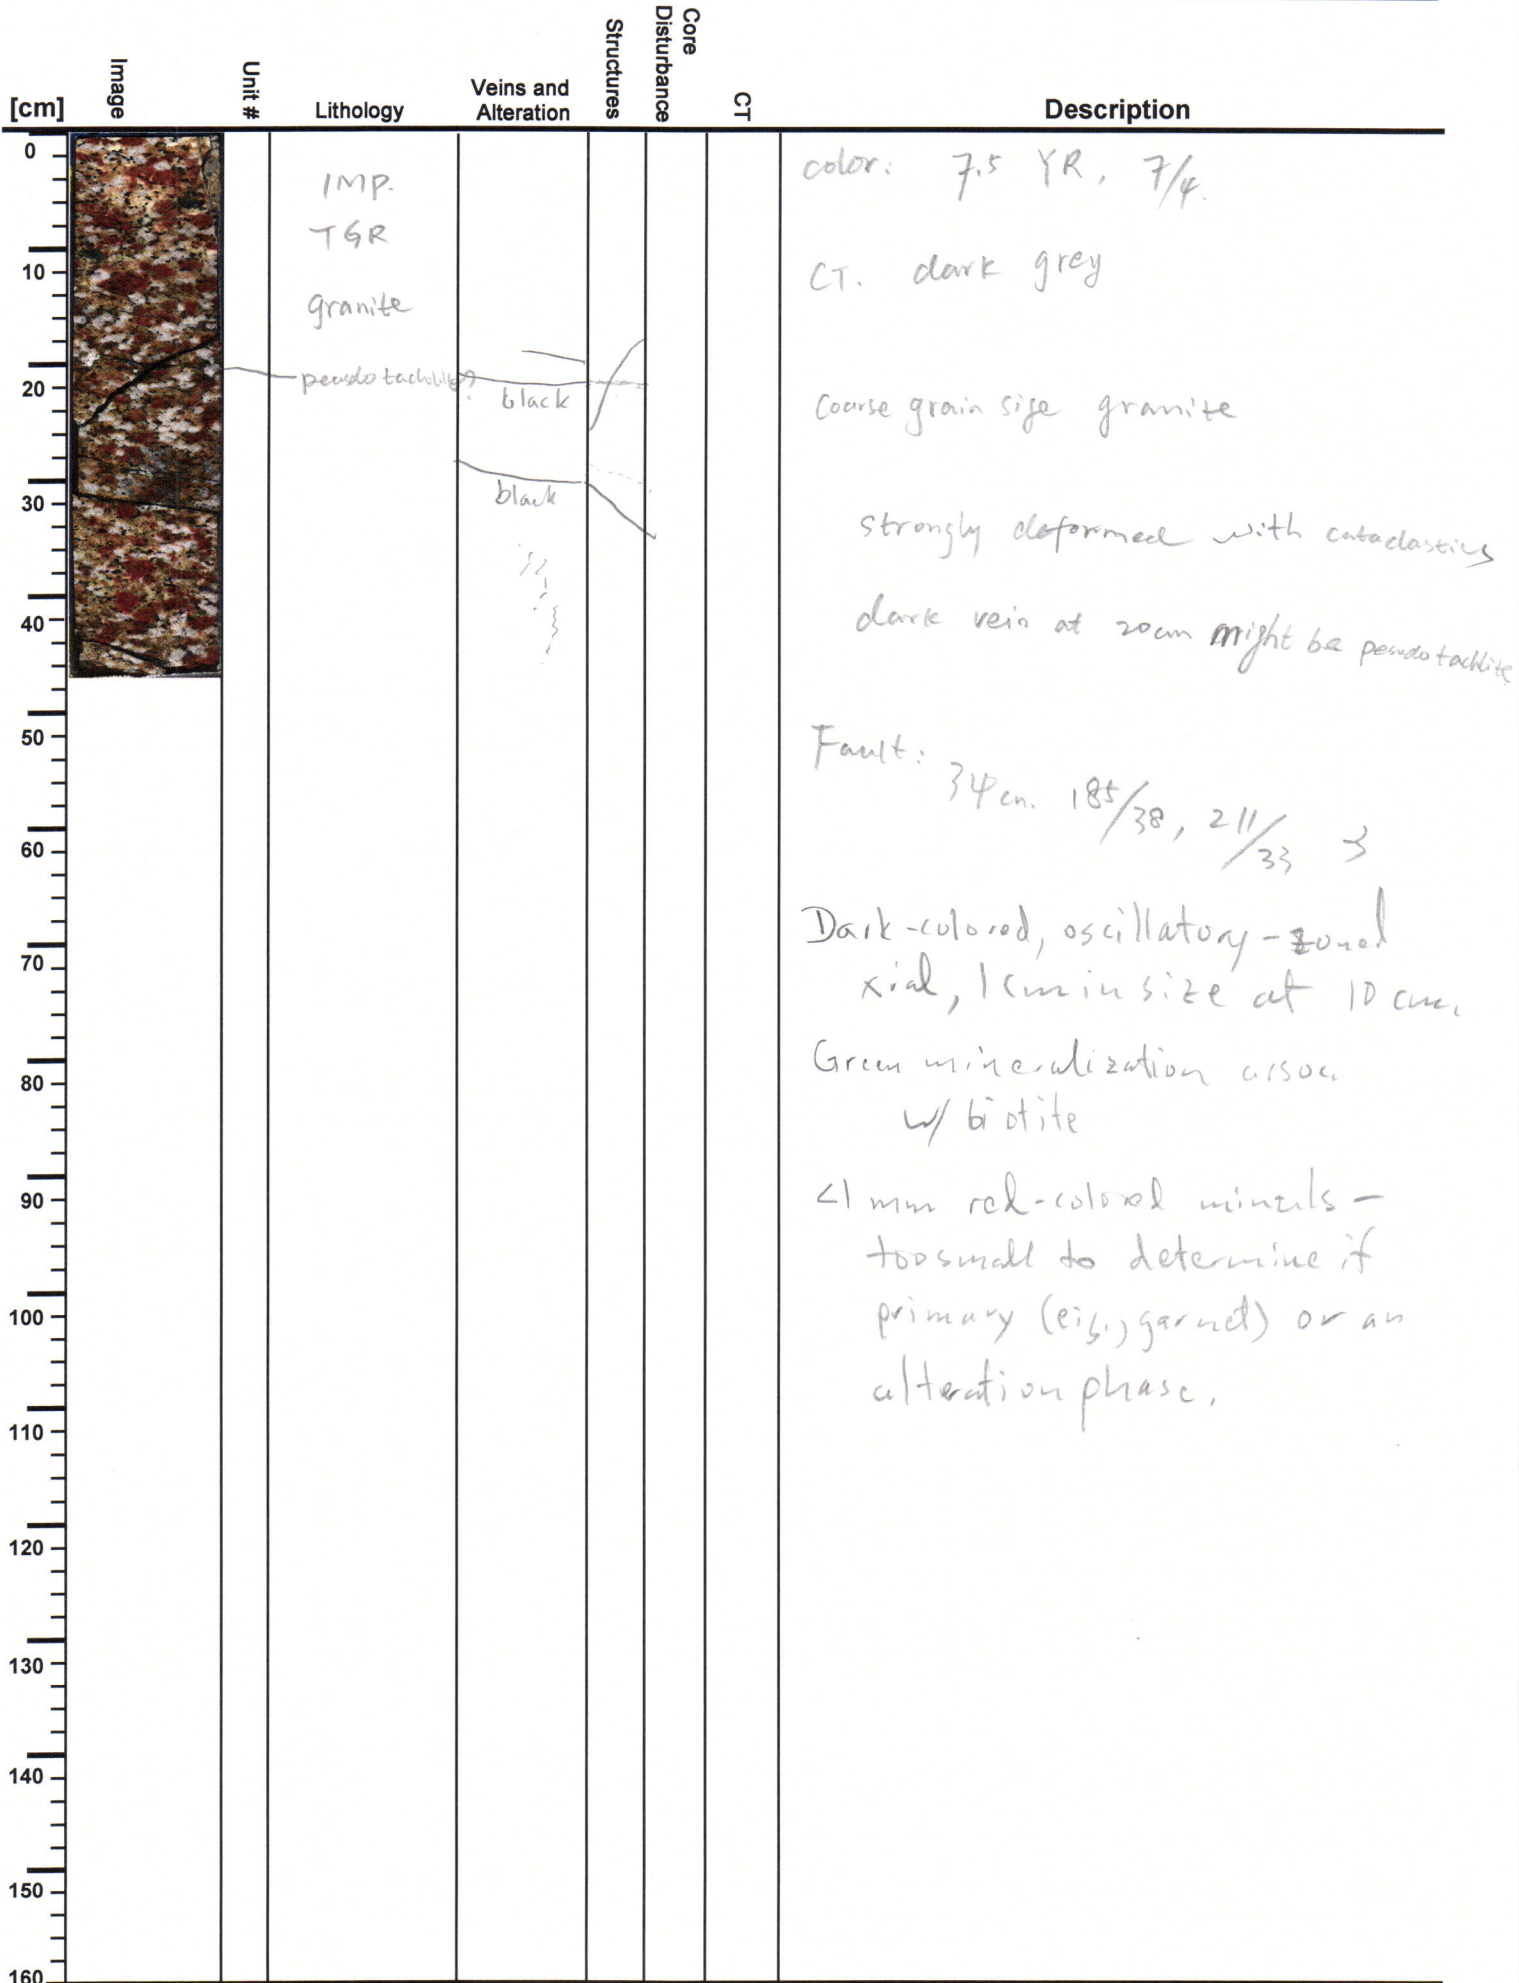 [cm]
Image
Unit #
Lithology
Veins and
Alteration
Structures
Core
Disturbance
CT
Description
0
10
20
30
40
50
60
70
80
90
100
110
120
130
140
150
160
IMP.
TGR
granite
black
black
color: 7.5 YR, 7/4.
CT. dark grey
Coarse grain size granite
strongly deformed with cataclastics
dark vein at 20cm might be
Fault:
34 cm. 185/38, 211/33
Dark-colored, oscillatory-zoned
xial, 1 cm in size at 10 cm.
Green mineralization assoc.
w/ biotite
<1 mm red-colored minerals -
too small to determine if
primary (e.g., garnet) or an
alteration phase.